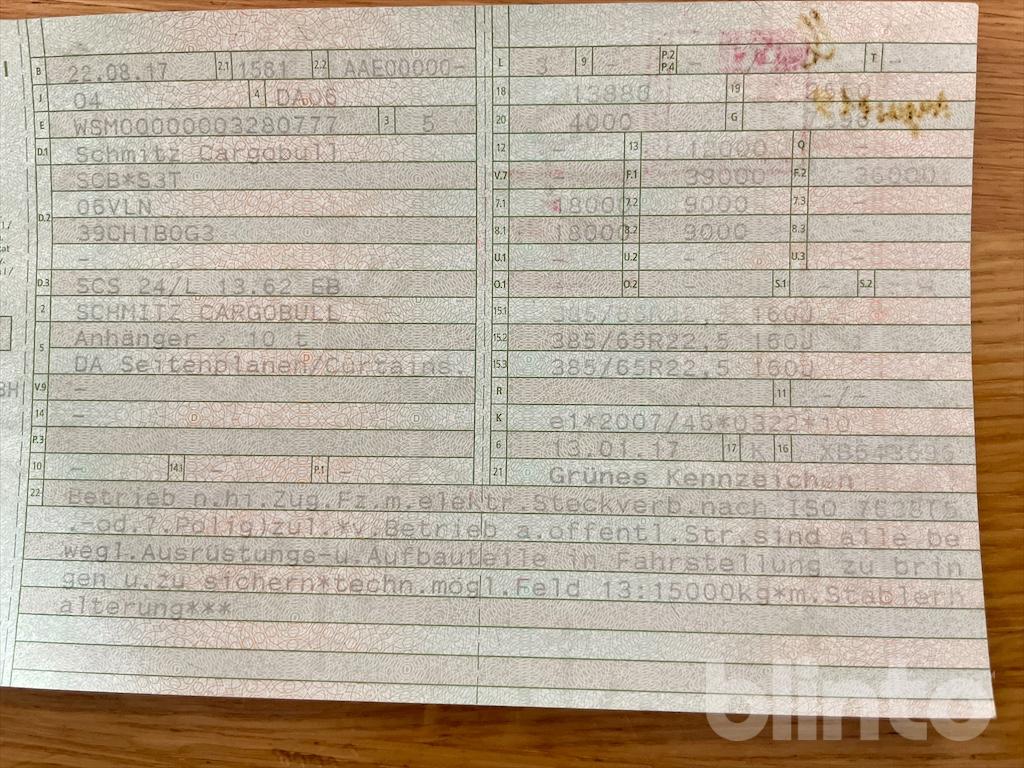 B 22.08.17 2.1 1581 2.2 AAE00000-
J 04 4 DA06
E WSM00000003280777 3 5
D.1 Schmitz Cargobull
SCB*S3T
D.2 06VLN
39CH1B0G3
-
D.3 SCS 24/L 13.62 EB
2 SCHMITZ CARGOBULL
5 Anhänger > 10 t
DA Seitenplanen/Curtains.
V.9 -
14 -
P.3
10 - 14.1 - P.1 -
L 3 9 - P.2 P.4 - T -
18 13880 19
20 4000 G
12 - 13 12000 Q -
V.7 - F.1 39000 F.2 36000
7.1 18000 7.2 9000 7.3
8.1 18000 8.2 9000 8.3
U.1 - U.2 - U.3 -
O.1 - O.2 - S.1 - S.2 -
15.1 385/65R22,5 160J
15.2 385/65R22,5 160J
15.3 385/65R22,5 160J
R 11 -/-
K e1*2007/46*0322*10
6 13.01.17 17 K 16
21 Grünes Kennzeichen
22 Betrieb n.hi.Zug.Fz.m.elektr.Steckverb.nach ISO 7638(5
.-od.7.Polig)zul.*v.Betrieb a.offentl.Str.sind alle be
wegl.Ausrüstungs-u.Aufbauteile in Fahrstellung zu brin
gen u.zu sichern*techn.mögl.Feld 13:15000kg*m.Staplerh
alterung***
blinto